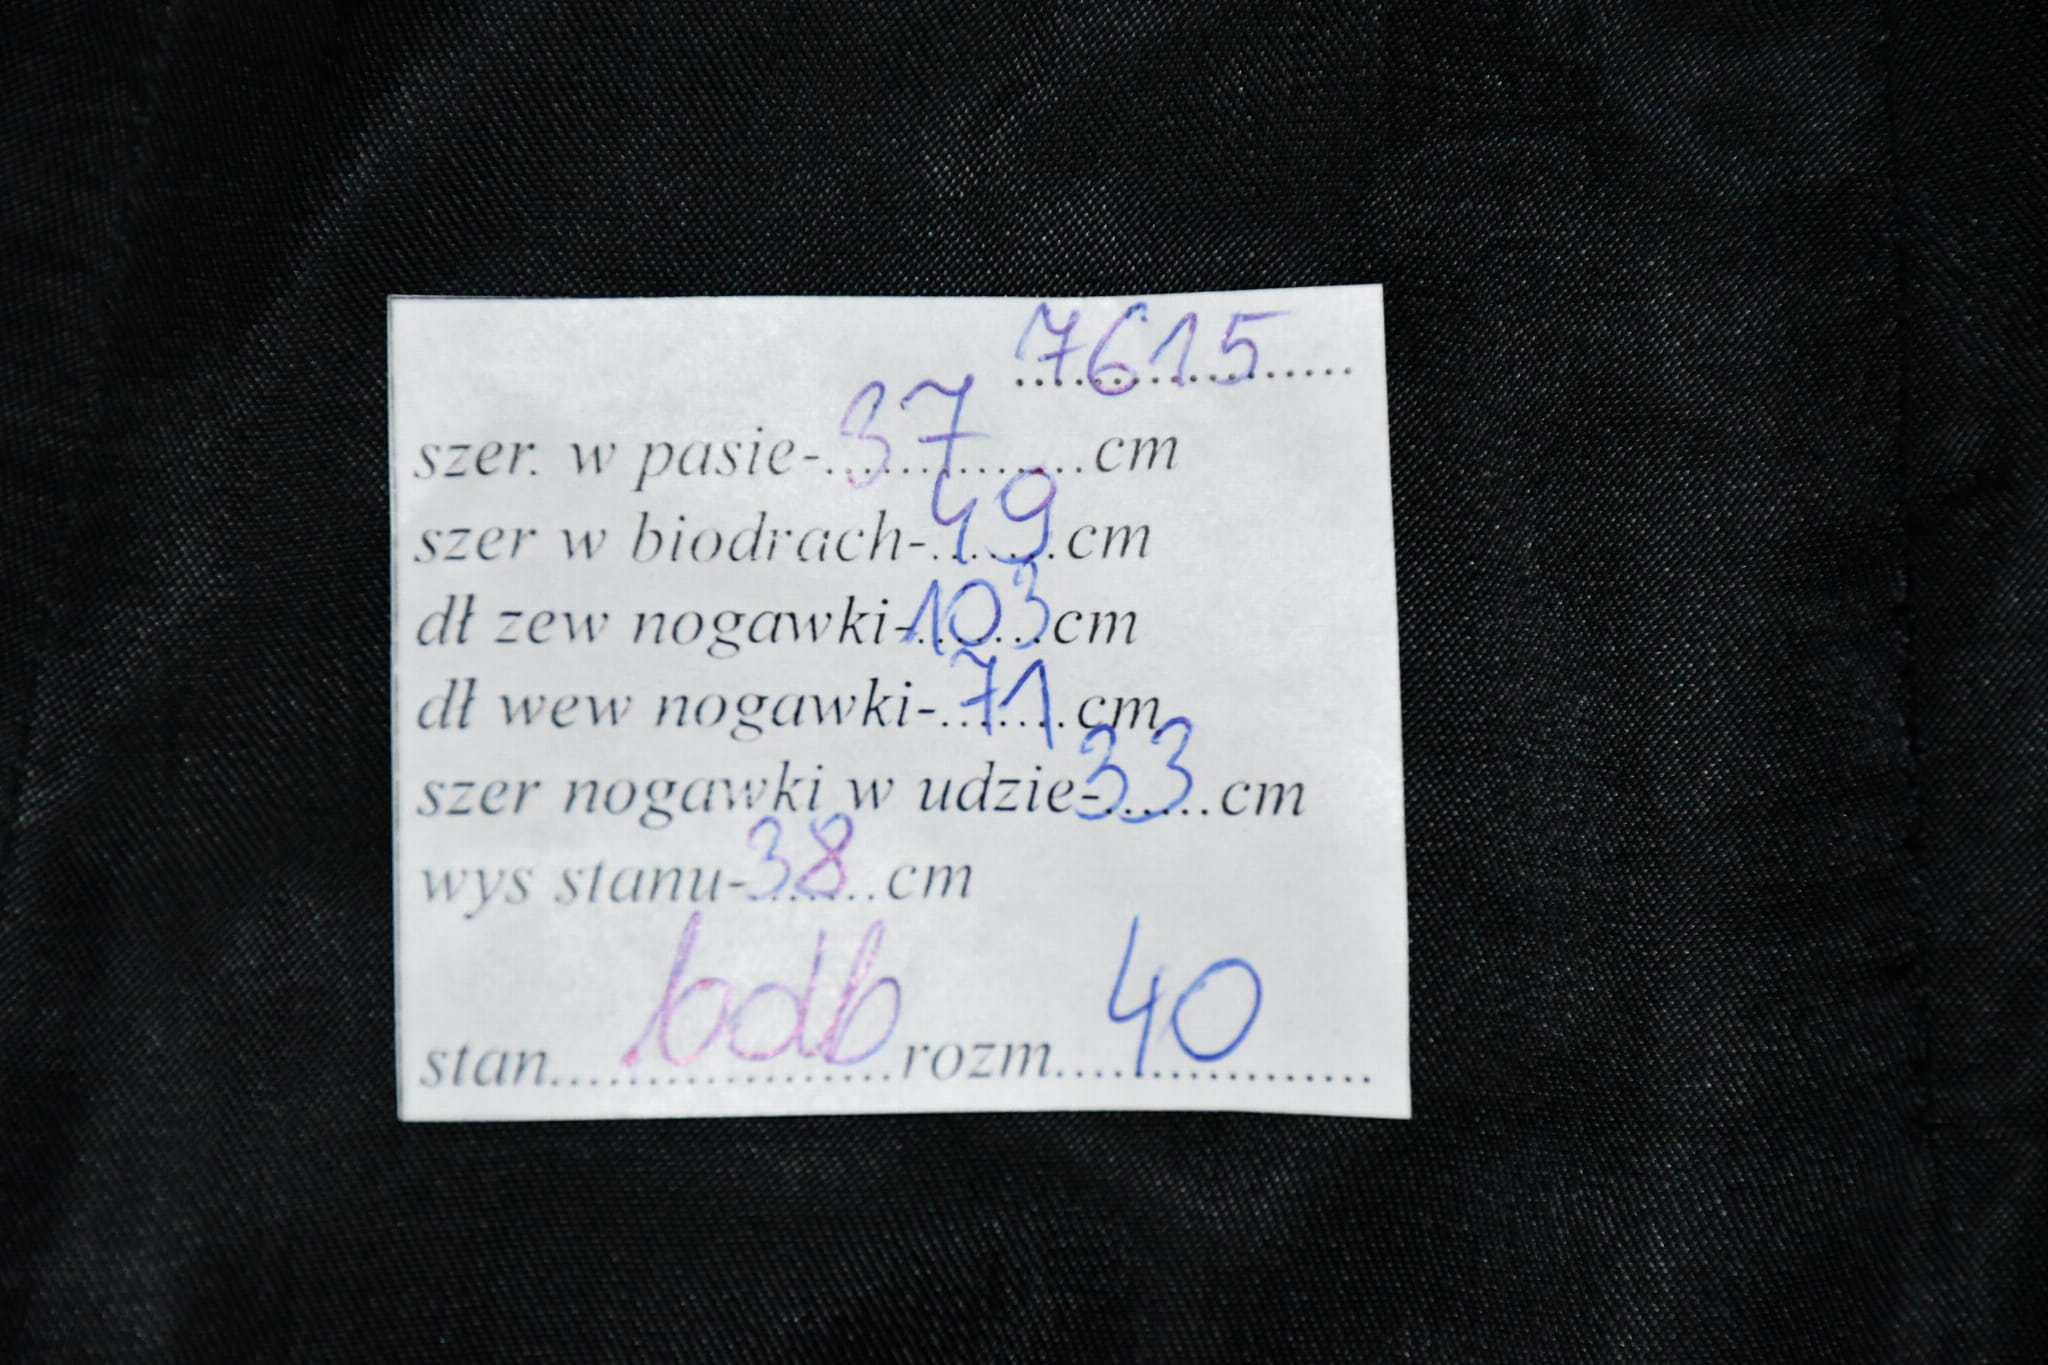 7615
szer. w pasie-37cm
szer w biodrach-49cm
dł zew nogawki-103cm
dł wew nogawki-71cm
szer nogawki w udzie-33cm
wys stanu-38cm
stan bdb rozm 40